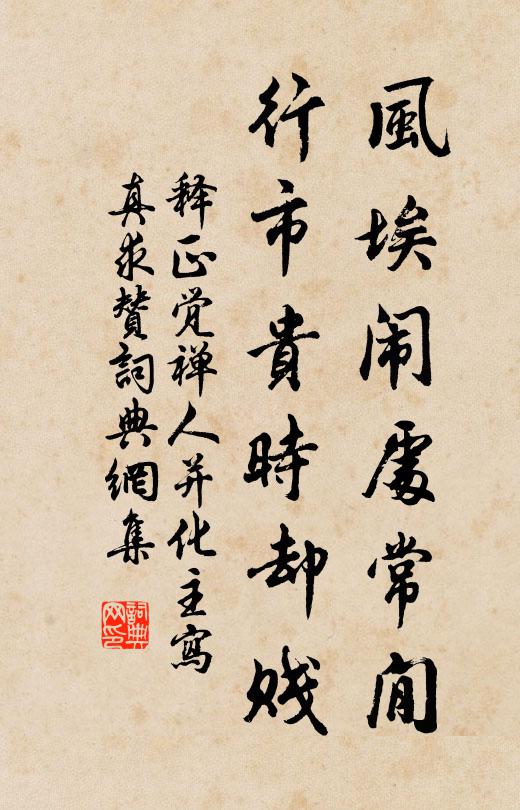 風埃闹處常閒
行市貴時却賤
释正觉禅人并化主寫
真求赞詞典網集
詞典网印